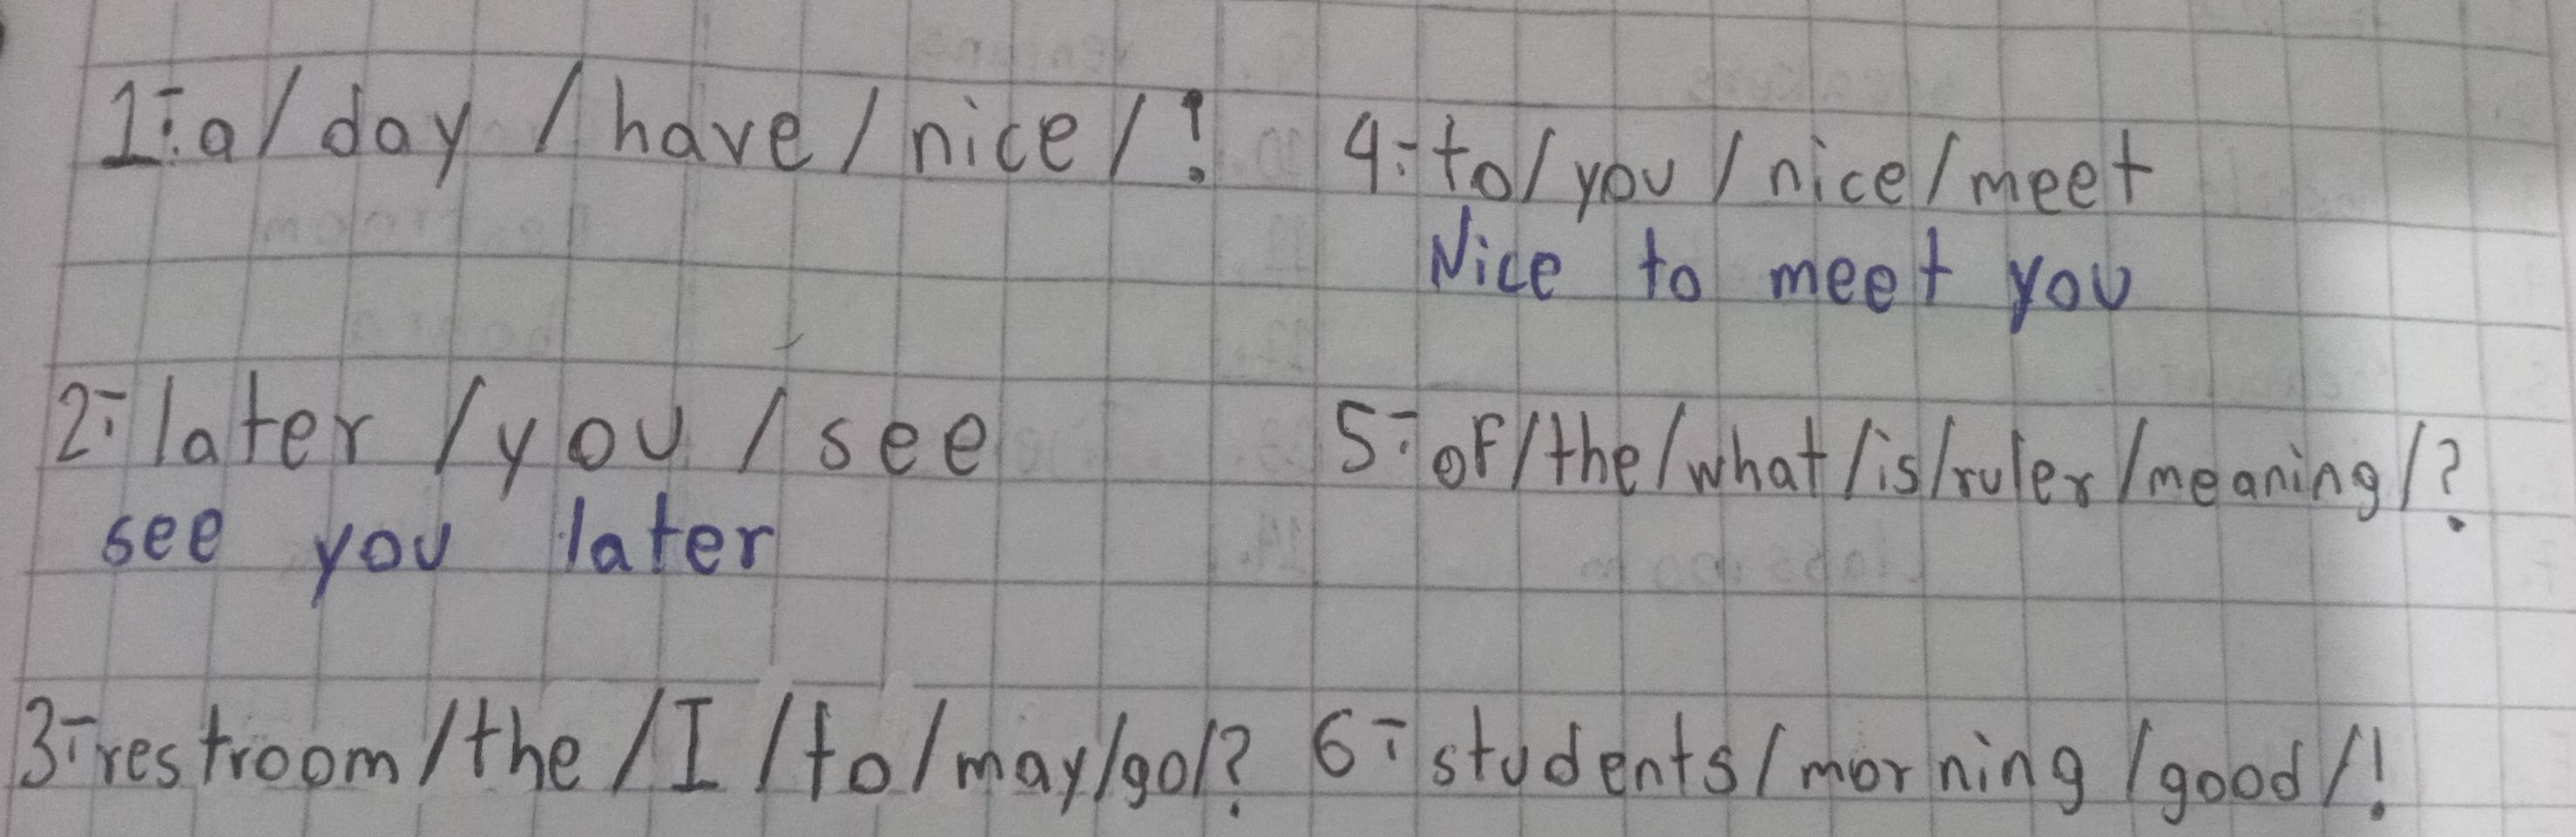 1÷a/day/have/nice/!
2÷later/you/see
see you later
3÷restroom/the/I/to/may/go/?
4÷to/you/nice/meet
Nice to meet you
5÷of/the/what/is/ruler/meaning/?
6÷students/morning/good/!